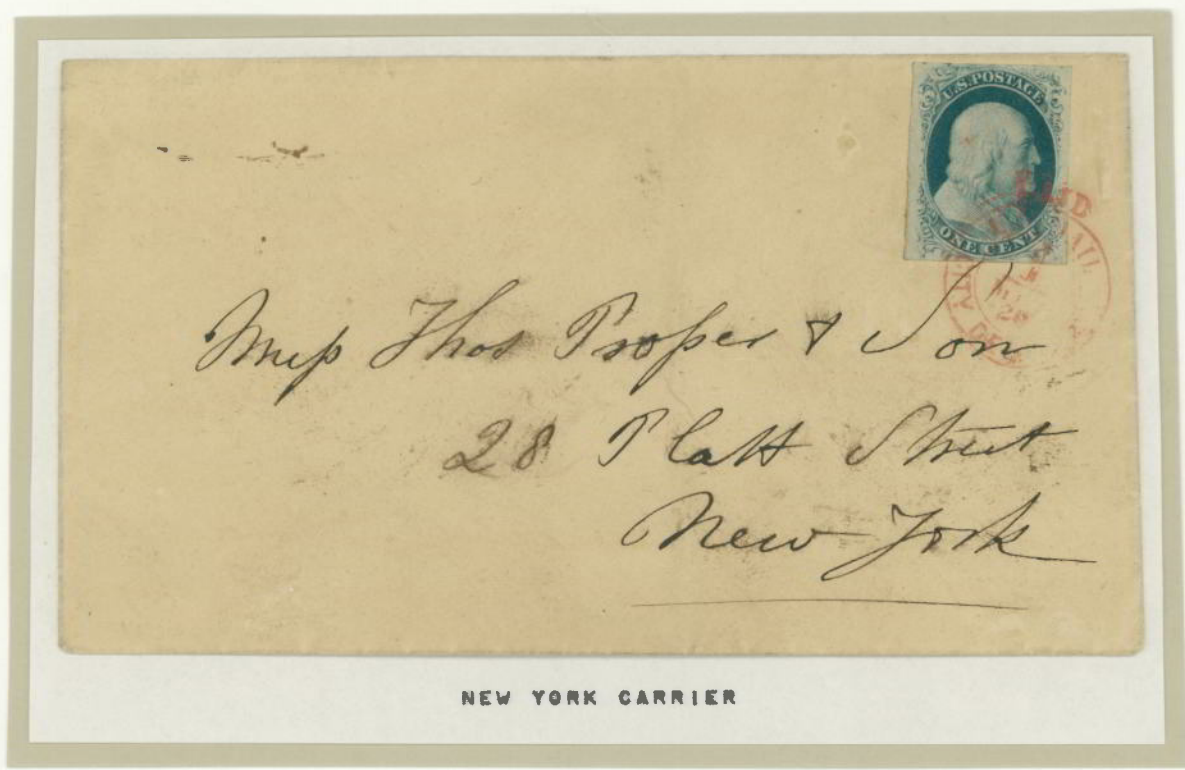 U.S. POSTAGE
ONE CENT
PAID
Mess Thos Prosser & Son
28 Platt Street
New York
NEW YORK CARRIER